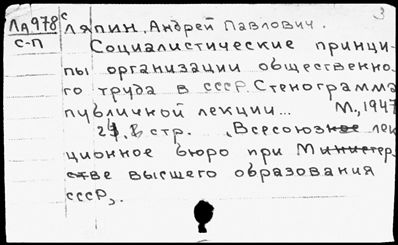 3
Лд978 с Ляпин, Андрей Павлович.
С-П Социалистические принци-
пы организации общественно-
го труда в СССР. Стенограмма
публичной лекции... М., 1947
24, 8 стр. (Всесоюзное лек-
ционное бюро при Министер-
стве высшего образования
СССР).